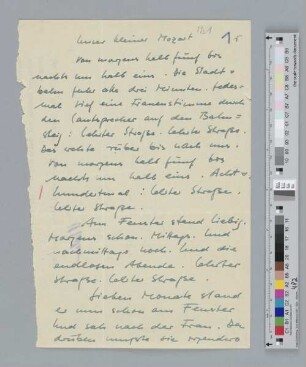 Unser kleiner Mozart
Von morgens halb fünf bis
nachts um halb eins. Die Stadt=
bahn fuhr alle drei Minuten. Jedes=
mal rief eine Frauenstimme durch
den Lautsprecher auf den Bahn=
steig: Lehrter Straße. Lehrter Straße.
Das wehte rüber bis nach uns.
Von morgens halb fünf bis
nachts um halb eins. Acht=
hundertmal: Lehrter Straße.
Lehrter Straße.
Am Fenster stand Liebig.
Morgens schon. Mittags. Und
nachmittags noch. Und die
endlosen Abende. Lehrter
Straße. Lehrter Straße.
Sieben Monate stand
er nun schon am Fenster
und sah nach der Frau. Da
drüben mußte sie irgendwo